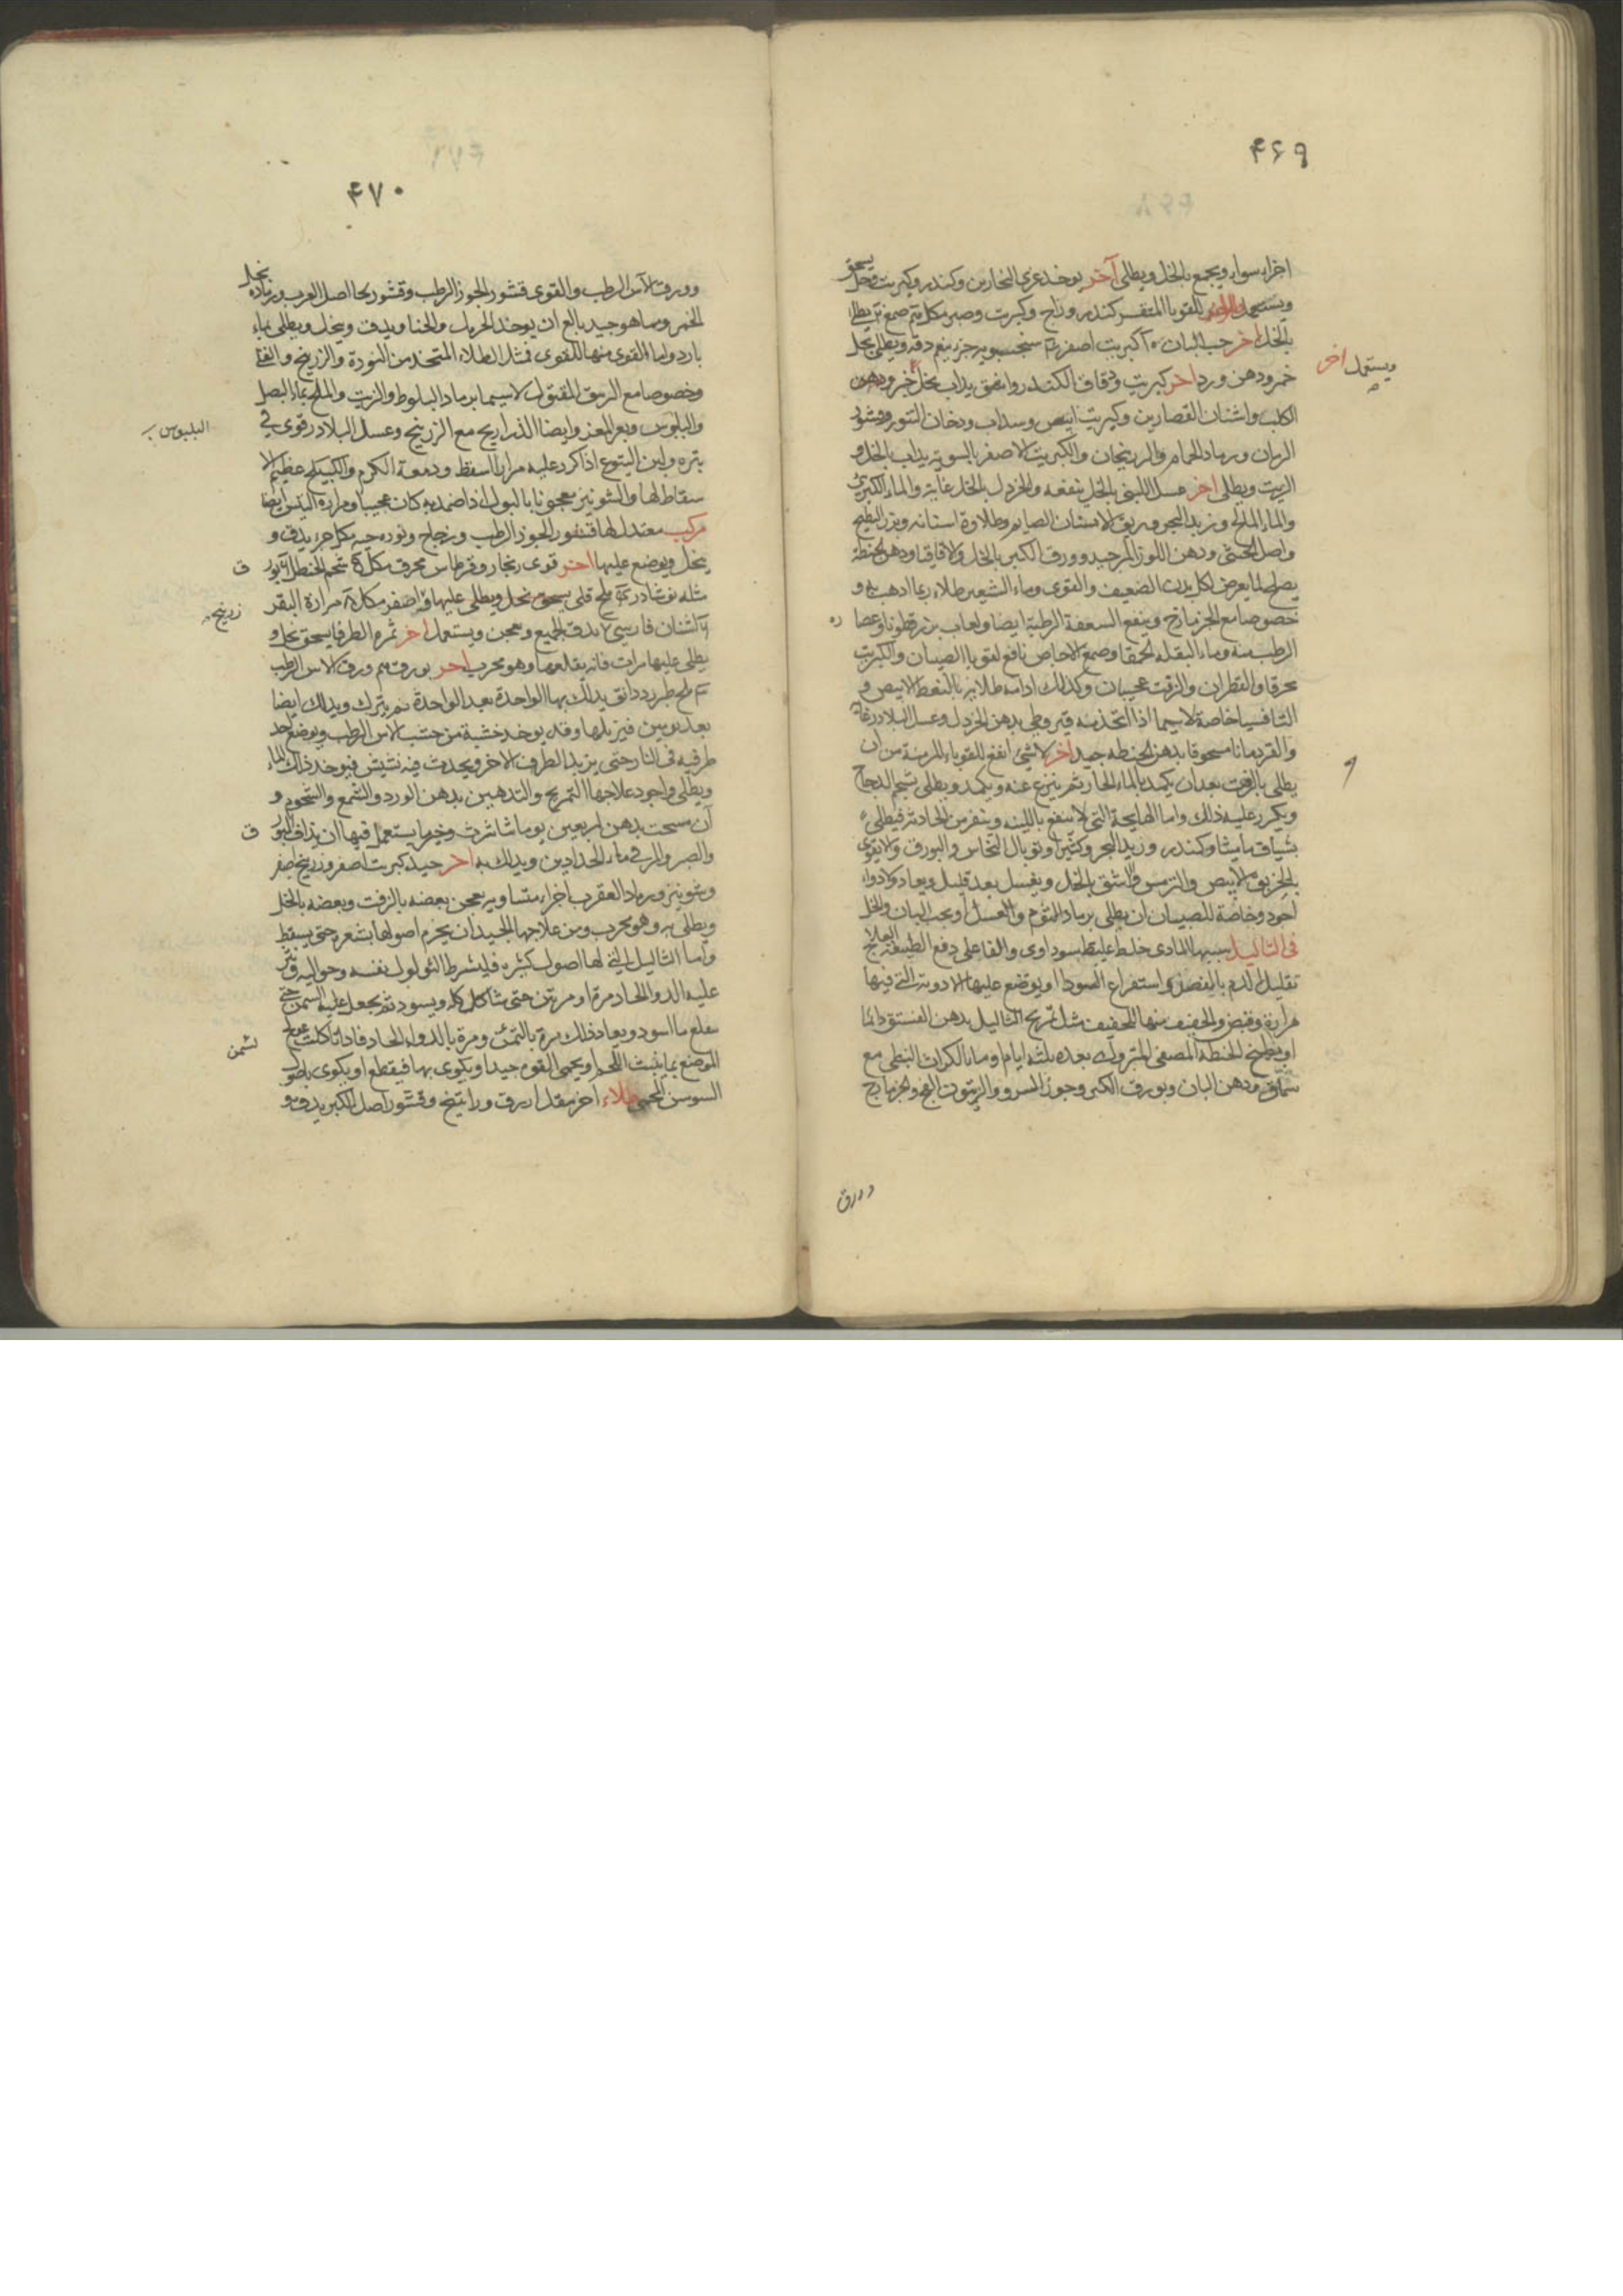 ۴۶۹
اجزاء سواء ويجمع بالخل ويطلى آخر يوخذ غرى النجارين وكندر وكبريت وخل يسحق
ويستعمل للقوبا المتقشر كندر وزاج وكبريت وصبر مكل صمغ يطلى
بالخل اخر حب البان كبريت اصفر جزء ينعم دقه ويطلى بخل
ويستعمل اخر
خمر ودهن ورد اخر كبريت ودقاق الكندر يداب بخل خمر
الكلب واشنان القصارين وكبريت ابيض وسداب ودخان التنور وقشور
الرمان ورماد الحمام والكبريت الاصفر بالسوية يداب بالخل و
الزيت ويطلى اخر عسل اللبنى بالخل ينفعه والخردل بالخل غاية والماء الكبريتى
والماء المالح وزبد البحر وريق الانسان الصايم وطلاوة اسنانه وبزر البطيخ
واصل الخنثى ودهن اللوز المر جيد وورق الكبر بالخل والاقاقيا ودهن الحنطة
يصلح لما يعرض لكل بدن الضعيف والقوى وماء الشعير طلاء و
خصوصا مع الجزمازج وينفع السعفة الرطبة ايضا ولعاب بزر قطونا وعصا
ره
الرطب منه وماء البقلة الحمقا وصمغ الاجاص نافع لقوبا الصبيان والكبريت
محرقا والقطران والزفت عجيبان وكذلك ادامه طلايه بالنفط الابيض و
الثافسيا خاصة لاسيما اذا اتخذ منه قيروطى بدهن الخردل وعسل البلادر غاية
والقردمانا مسحوقا بدهن الحنطه جيد اخر لا شئ انفع للقوباء المزمنة من ان
يطلى بالزفت بعد ان يكمد بالماء الحار ثم ينزع عنه ويكمد ويطلى بشحم الدجاج
ويكرر عليه ذلك واما الهايجة التى لا تنتفع باللينه وتنفر من الحادة فيطلى
بشياف ماميثا وكندر وزبد البحر وكثيرا وتوبال النحاس والبورق
بالخربق الابيض والترمس والاشق بالخل ويغسل بعد قليل ويعاد
اجود وخاصة للصبيان ان يطلى برماد الثوم والعسل او بحب البان والخل
فى الثاليل سببها المادى خلط غليظ سوداوى والفاعلى دفع الطبيعة العلاج
تقليل الدم بالفصد واستفراغ السودا ويوضع عليها الادوية التى فيها
مرارة وقبض والخفيف منها للخفيف مثل تمريخ الثاليل بدهن الفستق دائما
او بطبيخ الحنطة المصفى المتروك بعده ثلثه ايام وماء الكراث النبطى مع
سماق ودهن البان وبورق الكبر وجوز السرو والزيتون الفج والجزمازج
وورق
۴۷۰
وورق الاس الرطب والقوى قشور الجوز الرطب وقشور لحا اصل الغرب ورماده بخل
الخمر ومما هو جيد بالغ ان يوخذ الخرنوب والحنا ويدق وينخل ويطلى بماء
بارد واما القوى منها للقوى فمثل الطلاء المتخذ من النورة والزرنيخ والقلى
وخصوصا مع الزيبق المقتول لاسيما برماد البلوط والزيت والملح بماء البصل
والبلبوس وبعر المعز وايضا الذراريح مع الزرنيخ وعسل البلادر قوى فى
البلبوس
بتره ولبن اليتوع اذا كرر عليه مرارا اسقط ودمعة الكرم والكبيكج عظيم الا
سقاط لها والشونيز معجونا بالبول اذا ضمد به كان عجيبا ومرارة التيس ايضا
مركب معتدل لها قشور الجوز الرطب وزجاج ونورة حيه مكل جزء يدق و
ينخل ويوضع عليها اخر قوى زنجار وقرطاس محرق مكل شحم الحنظل بور
ق
مثله نوشادر ملح قلى يسحق بخل ويطلى عليها واصفر مكل مرارة البقر
زرنيخ
اشنان فارسى يدق الجميع ويعجن ويستعمل اخر ثمره الطرفا يسحق بخل و
يطلى عليها مرات فانه يقلعها وهو مجرب اخر بورق ورق الاس الرطب
ملح طبرزد دانق يدلك بها الواحدة بعد الواحدة ثم يترك ويدلك ايضا
بعد يومين فيزيلها وقد يوخذ خشبة من خشب الاس الرطب ويوضع احد
طرفيه فى النار حتى يزبد الطرف الاخر ويحدث فيه نشيش فيوخذ ذلك الماء
ويطلى واجود علاجها التمريخ والتدهين بدهن الورد والشمع والشحوم و
ان مسحت بدهن اربعين يوما وخير ما يستعمل فيها ان يداف البور
ق
والصبر والمر فى ماء الحدادين ويدلك به اخر جيد كبريت اصفر وزرنيخ اصفر
وشونيز ورماد العقرب اجزاء متساويه يعجن بعضه بالزفت وبعضه بالخل
ويطلى به وهو مجرب ومن علاجها الجيد ان يخرم اصولها بشعره حتى يسقط
واما الثاليل التى لها اصول كثيره فليشرط الثولول نفسه وحواليه وينثر
عليه الدواء الحاد مرة او مرتين حتى يتاكل كله ويسود ثم يجعل عليه السمن حتى
يقلع ما اسود ويعاد ذلك مرة بالسمن ومرة بالدواء الحاد فاذا تاكلت عولج
لسمن
الموضع بما ينبت اللحم ويحمى القوم جيدا ويكوى بها فيقطع او يكوى باصول
السوسن المحمى طلاء اخر مقدار ورق وراتينج وقشور اصل الكبر يدق و